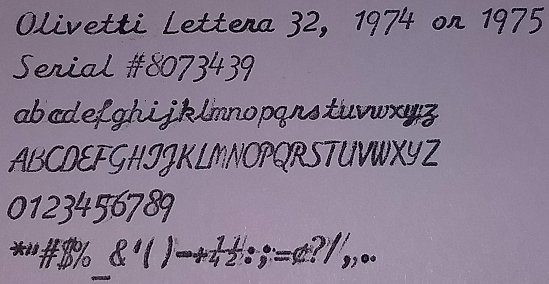 Olivetti Lettera 32, 1974 or 1975
Serial #8073439
abcdefghijklmnopqrstuvwxyz
ABCDEFGHIJKLMNOPQRSTUVWXYZ
0123456789
*"#$%_&'()-+¼½:;=¢?/',,..